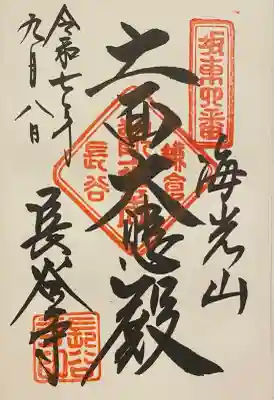 坂東四番
海光山
十一面大悲殿
鎌倉
長谷
長谷寺
長谷寺印
令和七年
九月八日